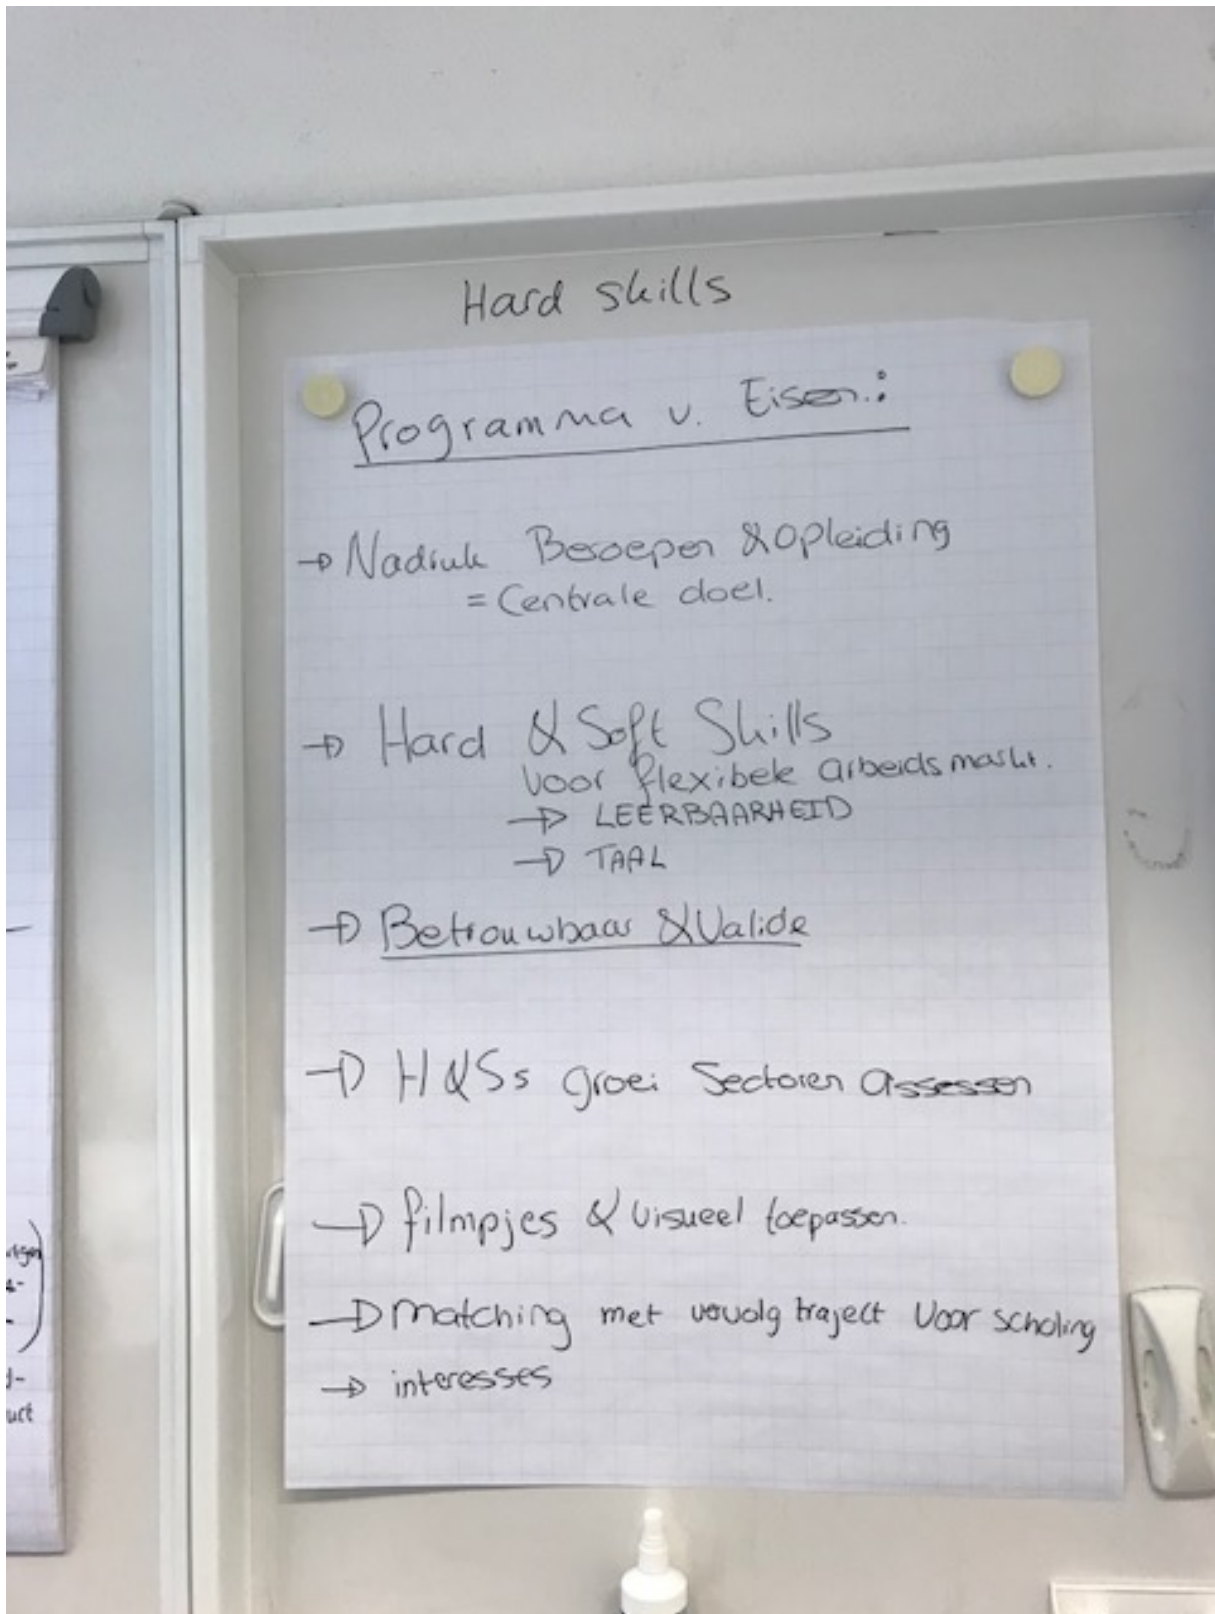 Hard skills
Programma v. Eisen:
→ Nadruk Beroepen & Opleiding
= Centrale doel.
→ Hard & Soft Skills
voor flexibele arbeidsmarkt.
→ LEERBAARHEID
→ TAAL
→ Betrouwbaar & Valide
→ H&Ss groei Sectoren assessen
→ filmpjes & visueel toepassen.
→ Matching met vervolg traject voor scholing
→ interesses